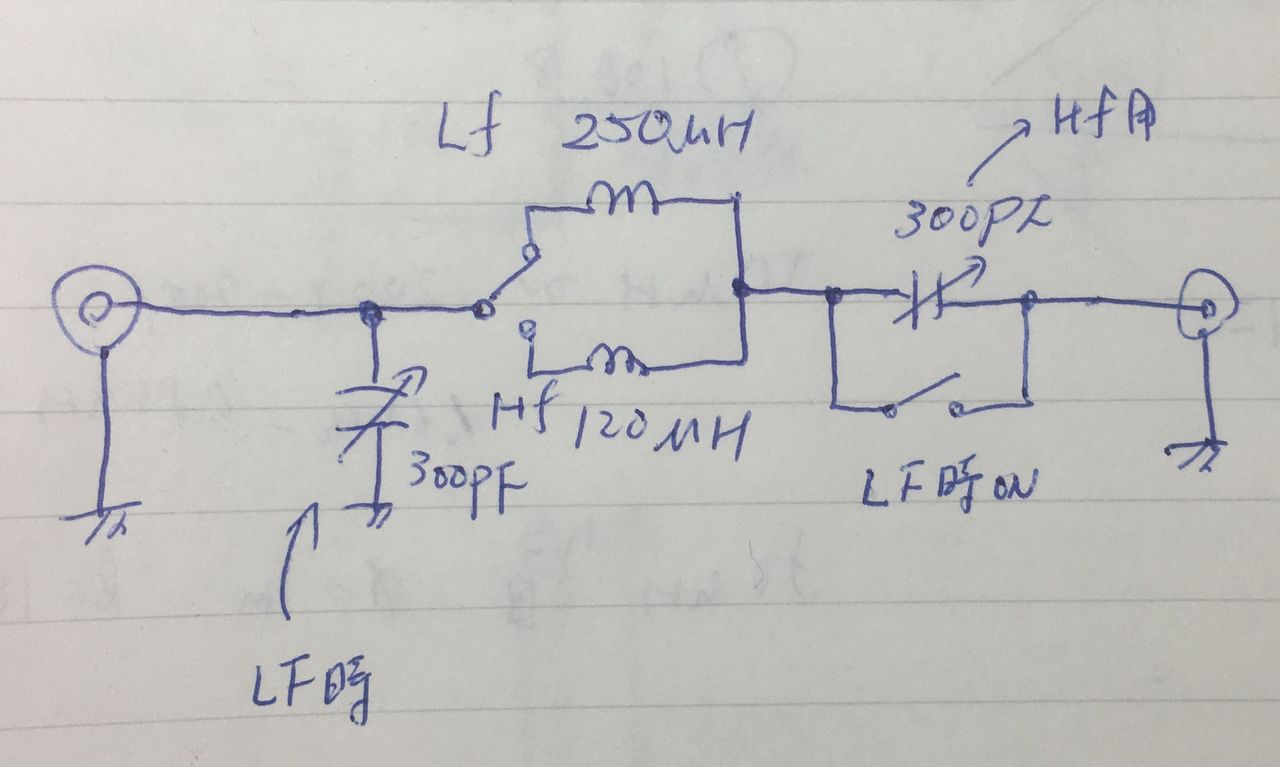 Lf 250μH
Hf用
300PF
Hf 120μH
300PF
LF時ON
LF時